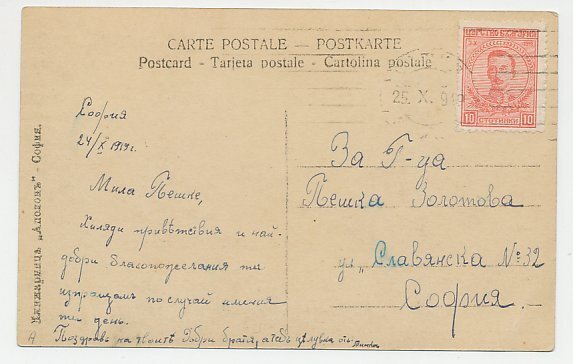 CARTE POSTALE — POSTKARTE
Postcard - Tarjeta postale - Cartolina postale
ЦАРСТВО БЪЛГАРИЯ
10 СТОТИНКИ 10
25. X. 919
София
24/X 1919 г.
Мила Пешке,
Хиляди приветствия и най-
добри благопожелания ти
изпращам по случай имения
ти день.
Поздравъ на твоитѣ добри братя, а тебъ целувка отъ
За Г-ца
Пешка Золотова
ул. „Славянска № 32
София.
Книжарница „Аполонъ" - София.